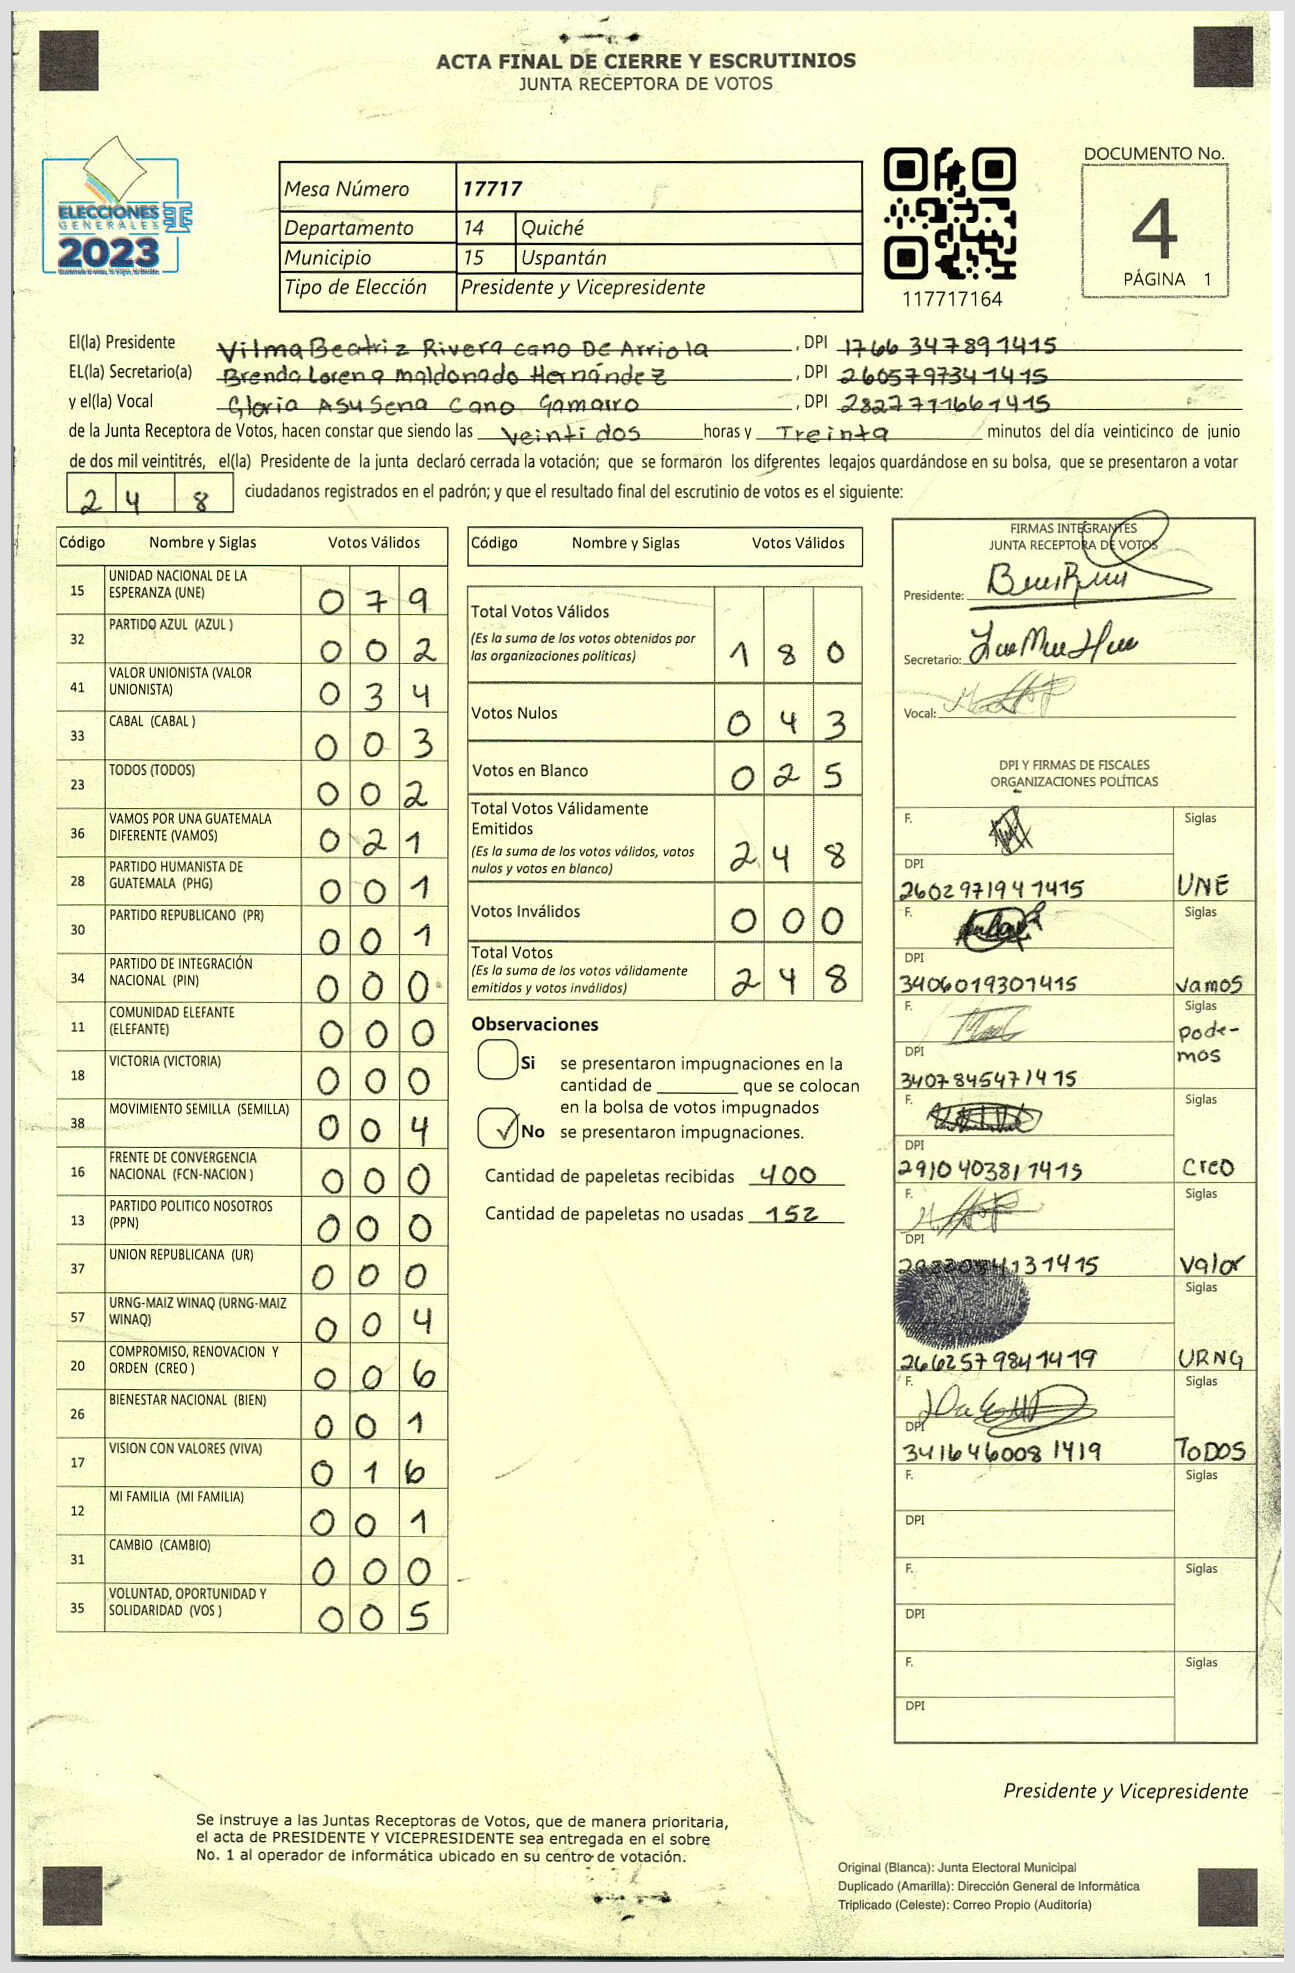 ACTA FINAL DE CIERRE Y ESCRUTINIOS
JUNTA RECEPTORA DE VOTOS
ELECCIONES
GENERALES
2023
Mesa Número 17717
Departamento 14 Quiché
Municipio 15 Uspantán
Tipo de Elección Presidente y Vicepresidente
117717164
DOCUMENTO No.
4
PÁGINA 1
El(la) Presidente Vilma Beatriz Rivera cano De Arriola, DPI 1766 34789 1415
EL(la) Secretario(a) Brenda Lorena maldonado Hernández, DPI 260579734 1415
y el(la) Vocal Gloria ASuSena Cano Gamarro, DPI 282771166 1415
de la Junta Receptora de Votos, hacen constar que siendo las veintidos horas y Treinta minutos del día veinticinco de junio
de dos mil veintitrés, el(la) Presidente de la junta declaró cerrada la votación; que se formaron los diferentes legajos quardándose en su bolsa, que se presentaron a votar
2 4 8 ciudadanos registrados en el padrón; y que el resultado final del escrutinio de votos es el siguiente:
Código Nombre y Siglas Votos Válidos
15 UNIDAD NACIONAL DE LA
ESPERANZA (UNE) 0 7 9
32 PARTIDO AZUL (AZUL ) 0 0 2
41 VALOR UNIONISTA (VALOR
UNIONISTA) 0 3 4
33 CABAL (CABAL ) 0 0 3
23 TODOS (TODOS) 0 0 2
36 VAMOS POR UNA GUATEMALA
DIFERENTE (VAMOS) 0 2 1
28 PARTIDO HUMANISTA DE
GUATEMALA (PHG) 0 0 1
30 PARTIDO REPUBLICANO (PR) 0 0 1
34 PARTIDO DE INTEGRACIÓN
NACIONAL (PIN) 0 0 0
11 COMUNIDAD ELEFANTE
(ELEFANTE) 0 0 0
18 VICTORIA (VICTORIA) 0 0 0
38 MOVIMIENTO SEMILLA (SEMILLA) 0 0 4
16 FRENTE DE CONVERGENCIA
NACIONAL (FCN-NACION ) 0 0 0
13 PARTIDO POLITICO NOSOTROS
(PPN) 0 0 0
37 UNION REPUBLICANA (UR) 0 0 0
57 URNG-MAIZ WINAQ (URNG-MAIZ
WINAQ) 0 0 4
20 COMPROMISO, RENOVACION Y
ORDEN (CREO ) 0 0 6
26 BIENESTAR NACIONAL (BIEN) 0 0 1
17 VISION CON VALORES (VIVA) 0 1 6
12 MI FAMILIA (MI FAMILIA) 0 0 1
31 CAMBIO (CAMBIO) 0 0 0
35 VOLUNTAD, OPORTUNIDAD Y
SOLIDARIDAD (VOS ) 0 0 5
Código Nombre y Siglas Votos Válidos
Total Votos Válidos
(Es la suma de los votos obtenidos por
las organizaciones políticas) 1 8 0
Votos Nulos 0 4 3
Votos en Blanco 0 2 5
Total Votos Válidamente
Emitidos
(Es la suma de los votos válidos, votos
nulos y votos en blanco) 2 4 8
Votos Inválidos 0 0 0
Total Votos
(Es la suma de los votos válidamente
emitidos y votos inválidos) 2 4 8
Observaciones
Si se presentaron impugnaciones en la
cantidad de ________ que se colocan
en la bolsa de votos impugnados
No se presentaron impugnaciones.
Cantidad de papeletas recibidas 400
Cantidad de papeletas no usadas 152
FIRMAS INTEGRANTES
JUNTA RECEPTORA DE VOTOS
Presidente:
Secretario:
Vocal:
DPI Y FIRMAS DE FISCALES
ORGANIZACIONES POLÍTICAS
F. Siglas
DPI
260297194 1415 UNE
F. Siglas
DPI
3406019301415 vamos
F. Siglas
pode-
DPI mos
3407845471415
F. Siglas
DPI
2910 40381 1415 creo
F. Siglas
DPI
131415 valor
Siglas
266257984 1419 URNG
F. Siglas
DPI
341646008 1419 ToDOS
F. Siglas
DPI
F. Siglas
DPI
F. Siglas
DPI
Presidente y Vicepresidente
Se instruye a las Juntas Receptoras de Votos, que de manera prioritaria,
el acta de PRESIDENTE Y VICEPRESIDENTE sea entregada en el sobre
No. 1 al operador de informática ubicado en su centro de votación.
Original (Blanca): Junta Electoral Municipal
Duplicado (Amarilla): Dirección General de Informática
Triplicado (Celeste): Correo Propio (Auditoría)